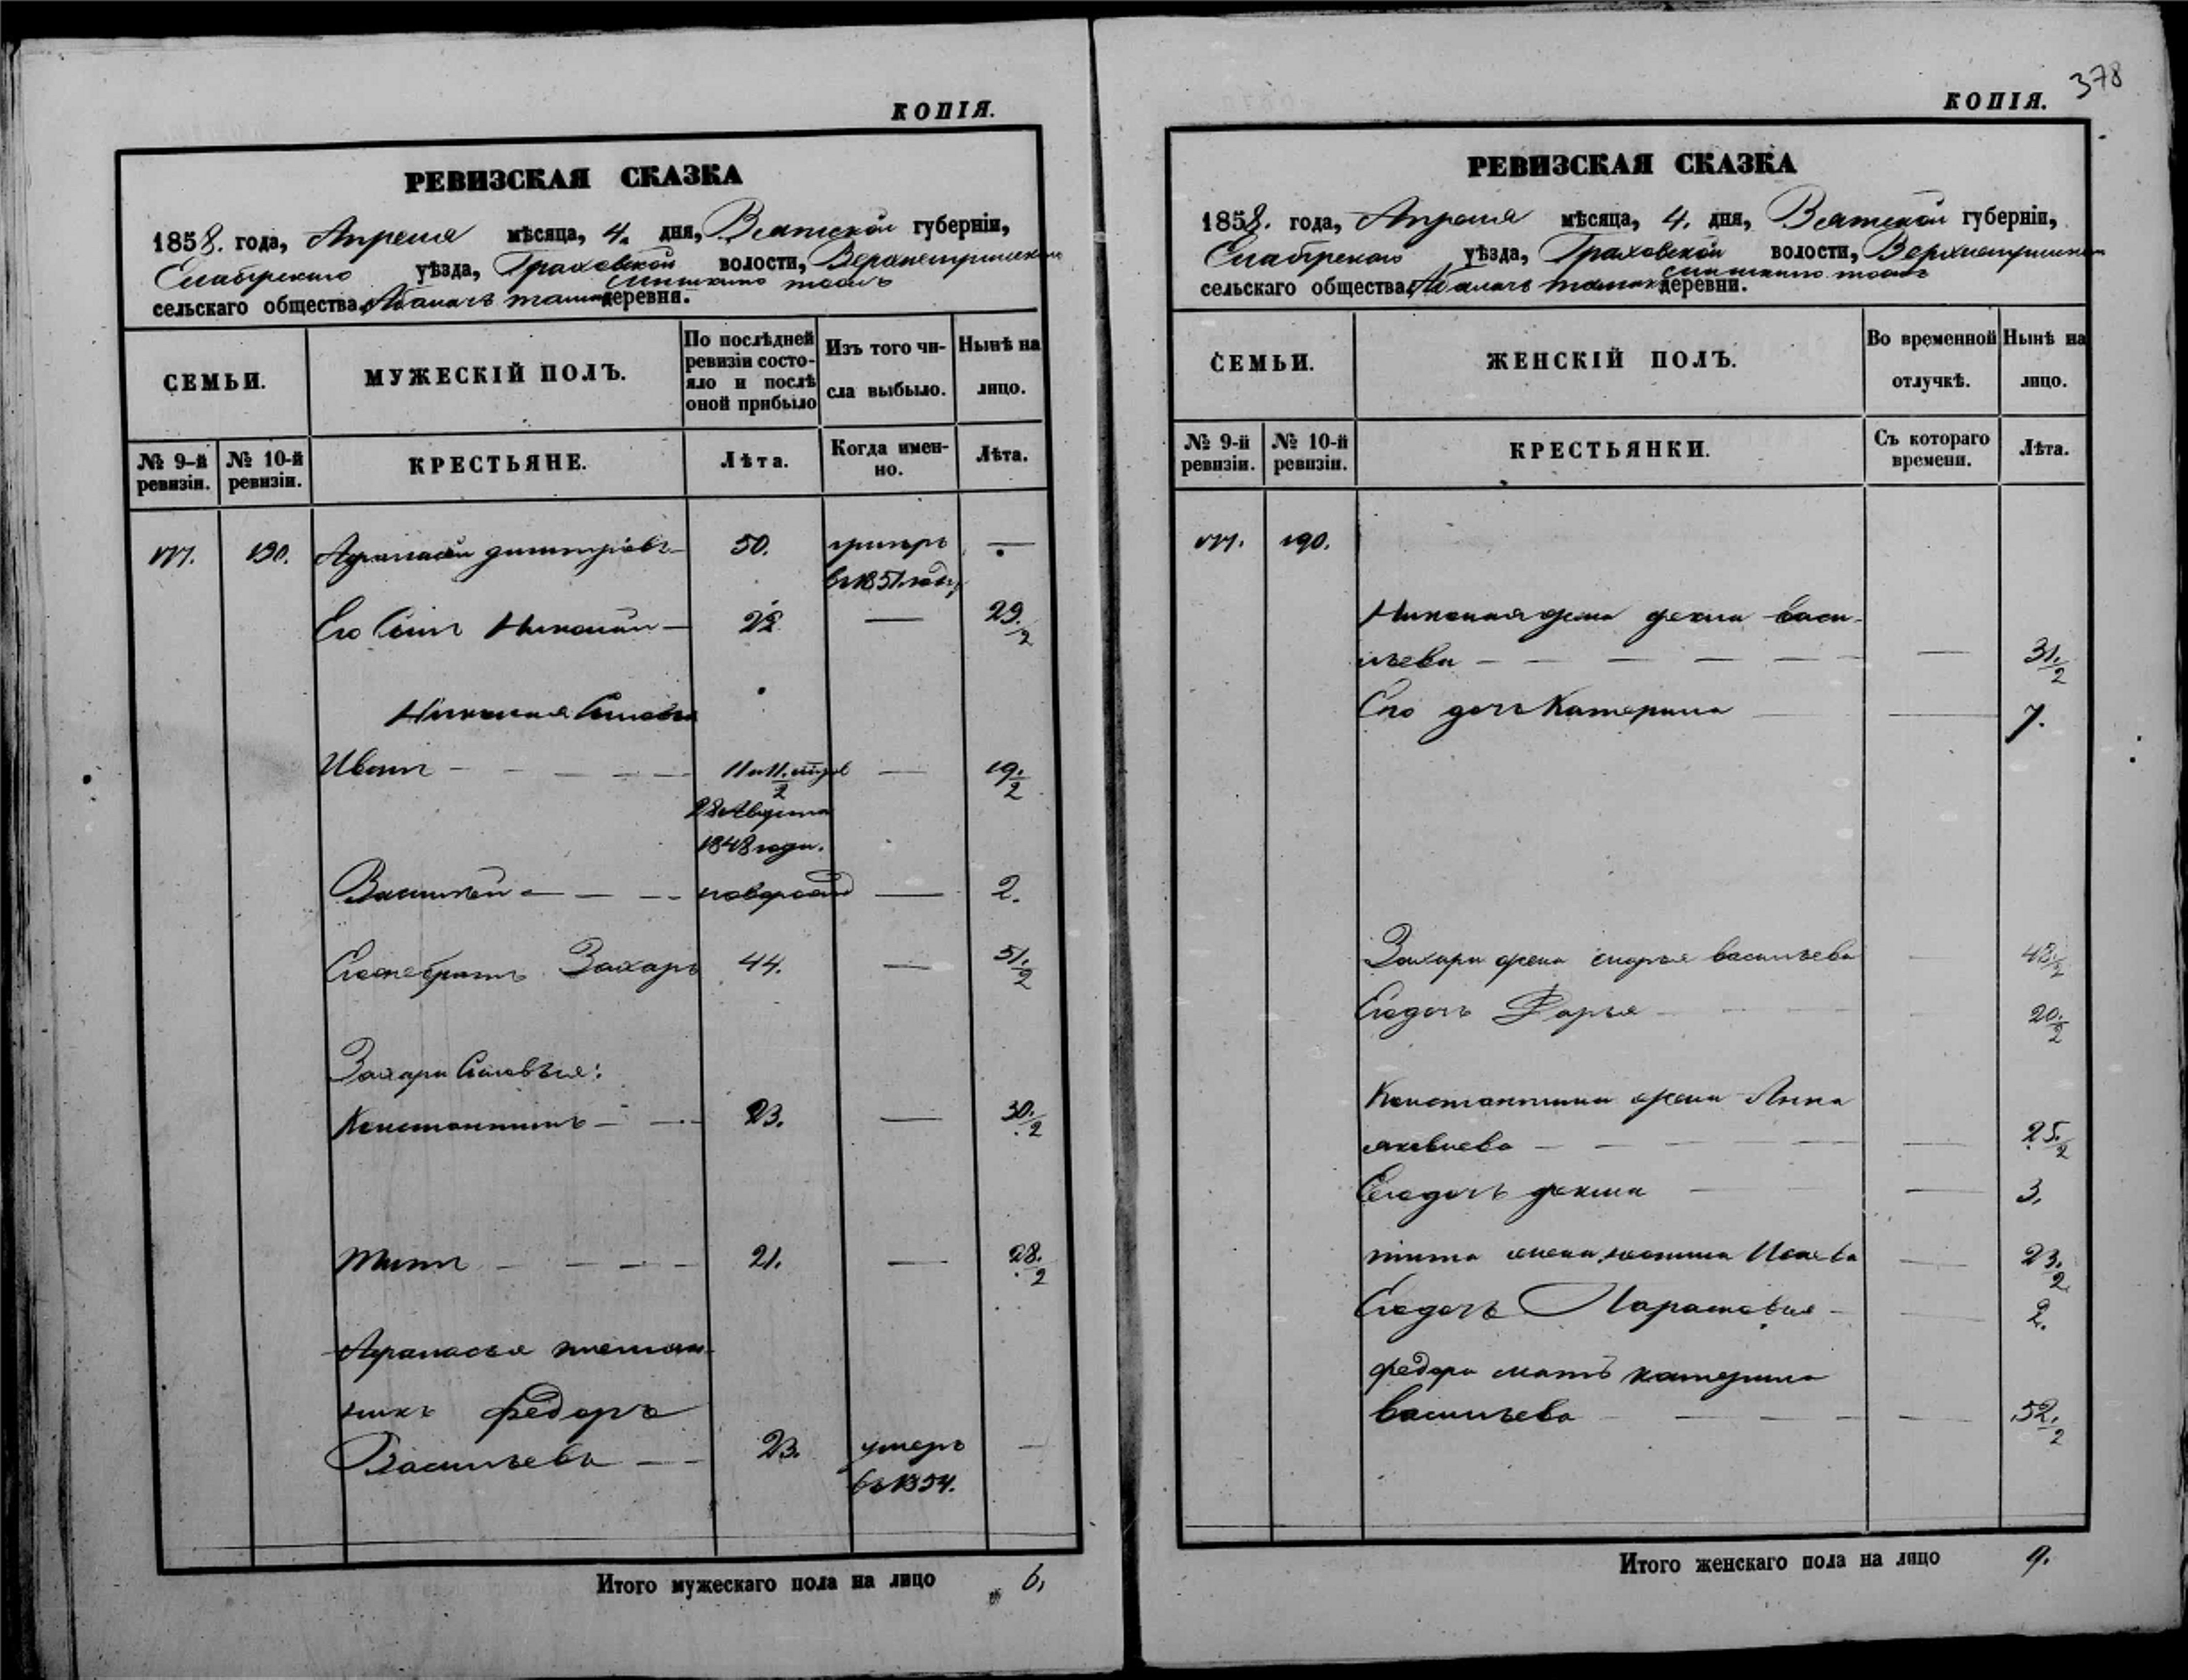 КОПІЯ.
РЕВИЗСКАЯ СКАЗКА
1858. года, Апреля мѣсяца, 4. дня, Вятской губерніи,
Елабугскаго уѣзда, Граховской волости,
сельскаго общества деревни.
СЕМЬИ.
МУЖЕСКІЙ ПОЛЪ.
По послѣдней ревизіи состо-
яло и послѣ оной прибыло
Изъ того чи-
сла выбыло.
Нынѣ на
лицо.
№ 9-й ревизіи.
№ 10-й ревизіи.
КРЕСТЬЯНЕ.
Лѣта.
Когда имен-
но.
Лѣта.
190. Афанасій Димитріевъ 50. умеръ —
въ 1851 году
Его Сынъ Николай — 22 — 29.½
Николая Сыновья
Иванъ — — — — — — 19.½
28 Августа
1848 года.
Василей — — — новорожд — 2.
Захаръ 44. — 51.½
Захара Сыновья:
Константинъ — — 23. — 30.½
Титъ — — — — 21. — 28.½
Афанасья племян-
никъ Федоръ
Васильевъ — — 23. умеръ —
въ 1854.
Итого мужескаго пола на лицо 6,
378
КОПІЯ.
РЕВИЗСКАЯ СКАЗКА
1858. года, Апреля мѣсяца, 4. дня, Вятской губерніи,
Елабугскаго уѣзда, Граховской волости,
сельскаго общества деревни.
СЕМЬИ.
ЖЕНСКІЙ ПОЛЪ.
Во временной
отлучкѣ.
Нынѣ на
лицо.
№ 9-й ревизіи.
№ 10-й ревизіи.
КРЕСТЬЯНКИ.
Съ котораго
времени.
Лѣта.
190.
Николая жена фекла Васи-
льева — — — — — — 31.½
Его дочь Катерина — 7.
Захара жена марья васильева — 43.½
Его дочь Дарья — — — 20.½
Константина жена Анна
яковлева — — — — — — 25.½
Его дочь фекла — — — 3.
тита жена Исаева — 23.½
Его дочь Парасковья — — 2.
федора мать катерина
васильева — — — — — 52.½
Итого женскаго пола на лицо 9.